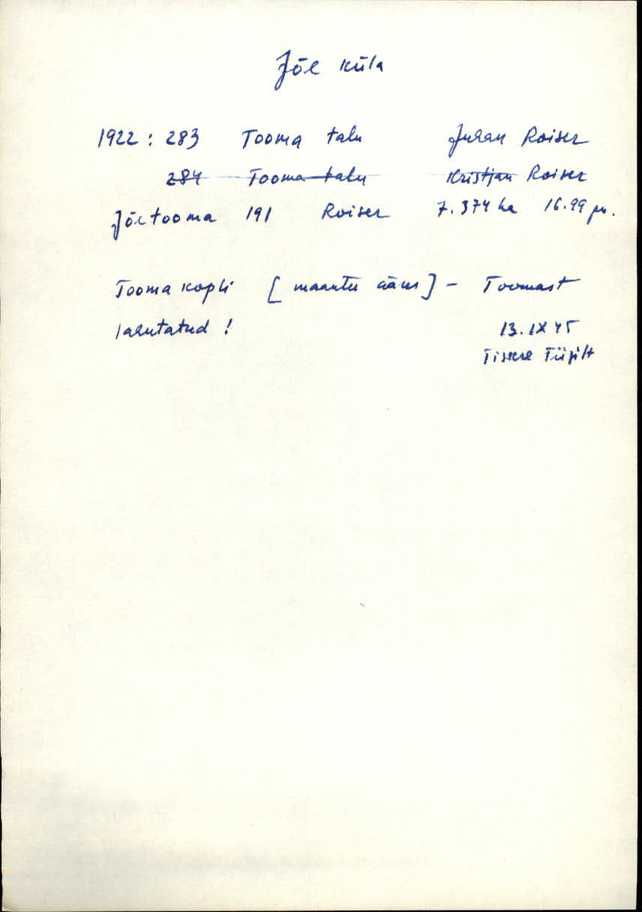 Jõe küla
1922: 283 Tooma talu Juhan Roiser
284 Tooma talu Kristjan Roiser
Jõetooma 191 Roiser 7.374 ha 16.99
Tooma kopli [maantee ääres] - Toomast
lahutatud!
13.IX 45
Tiskre